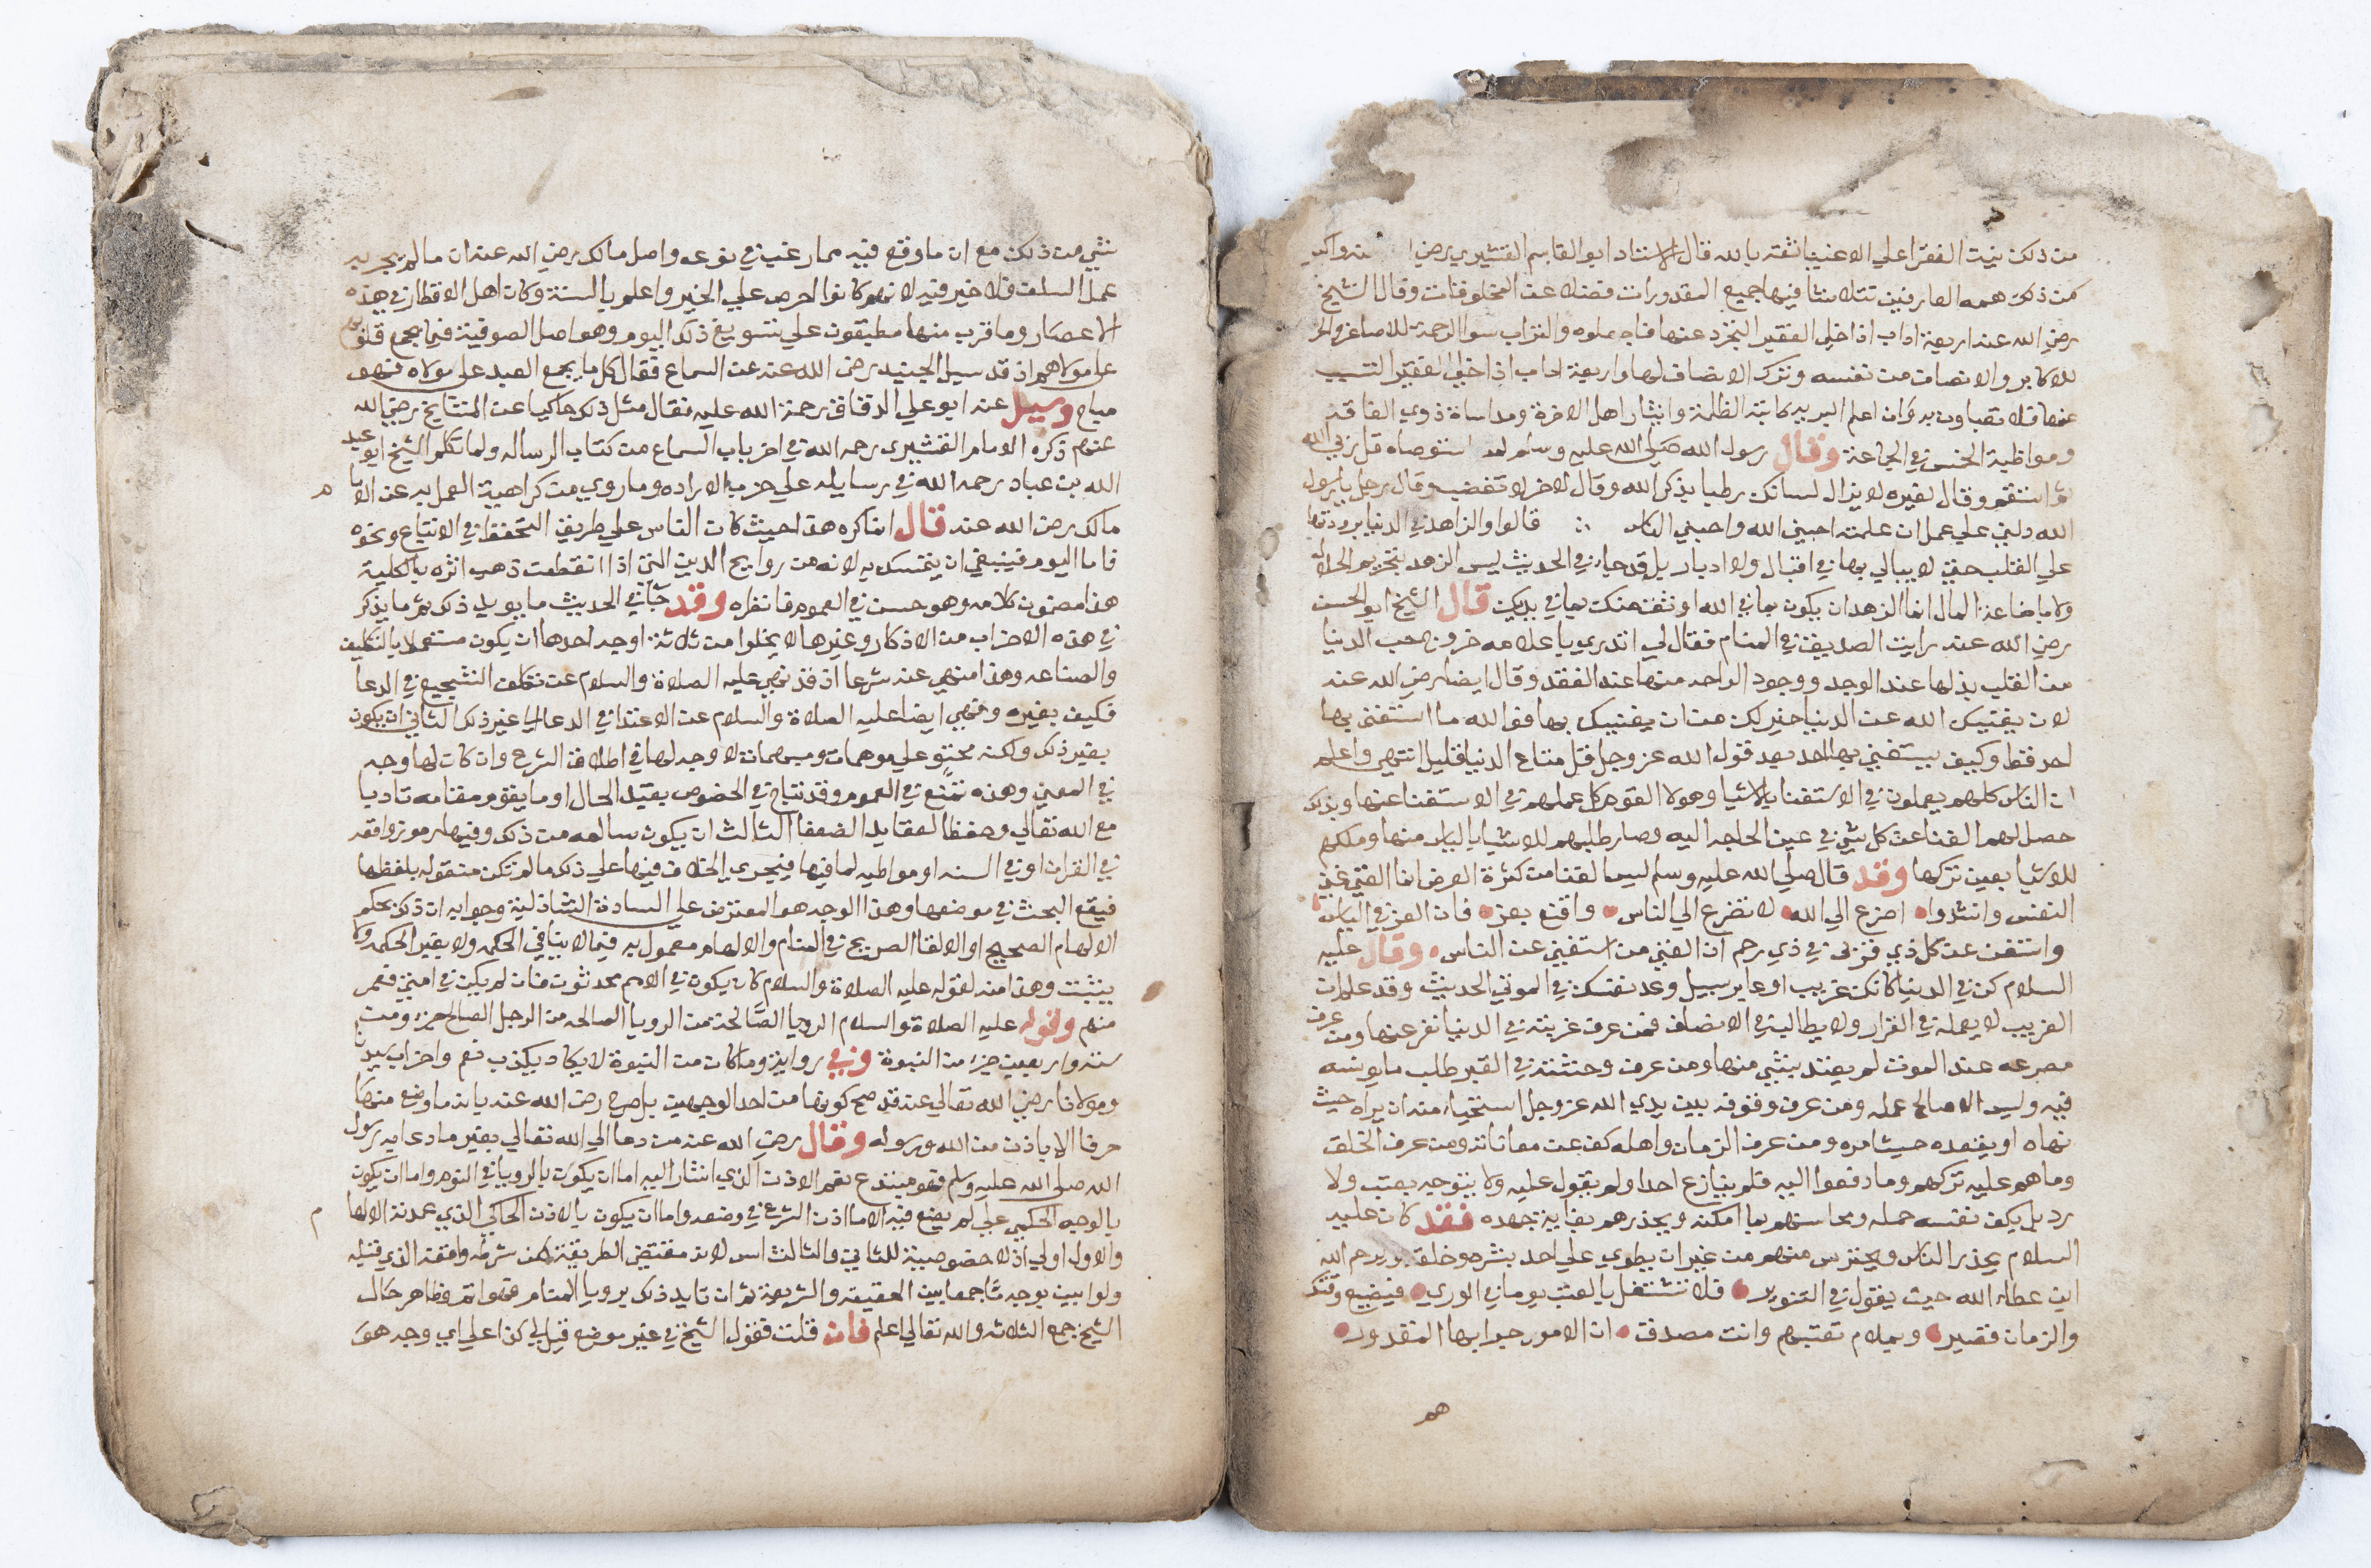 من ذلك تيت الفقرا علي الاغنيا ثقة بالله قال الاستاد ابو القاسم القشيري رضي
من ذلك همه العارفين تتلاشا فيها جميع المقدورات فضلا عن المخلوقات وقال الشيخ
رضي الله عنه اربعة اداب اذا خلي الفقير المتجرد عنها فاجعلوه والتراب سوا الرحمة للاصاغر والحر
للاكابر والانصاف من نفسه وترك الانصاف لها واربعة اداب اذا خلي الفقير المتسبب
عنها فلا تعباون به وان اعلم البريه مجانبة الظلمة وايثار اهل الاخرة ومواساة ذوي الفاقة
ومواظبة الخمس في الجماعة وقال رسول الله صلي الله عليه وسلم لمن استوصاه قل ربي الله
ثم استقم وقال لغيره لا يزال لسانك رطبا بذكر الله وقال لاخر لا تغضب وقال رجل يا رسول
الله دلني علي عمل ان علمته احبني الله واحبني الناس قالوا والزاهد في الدنيا برودتها
علي القلب حتي لا يبالي بها في اقبال ولا ادبار بل قد جاء في الحديث ليس الزهد بتحريم الحلال
ولا باضاعة المال انما الزهد ان يكون بما في الله اوثق منك بما في يديك قال الشيخ ابو الحسن
رضي الله عنه رايت الصديق في المنام فقال لي اتدري يا علامه خروج حب الدنيا
من القلب بذلها عند الوجد ووجود الراحه منها عند الفقد وقال ايضا رضي الله عنه
لان يفتيك الله عن الدنيا خير لك من ان يغنيك بها فوالله ما استغني بها
احد قط وكيف يستغني بها احد بعد قول الله عز وجل قل متاع الدنيا قليل انتهي واعلم
ان الناس كلهم يعملون في الاستغنا بالاشيا وهولا القوم كل عملهم في الاستغنا عنها وبذلك
حصل لهم الغنا عن كل شي في عين الحاجه اليه وصار طلبهم للاشيا بالياس منها وملكهم
للاشيا بعين تركها وقد قال صلي الله عليه وسلم ليس الغنا من كثرة العرض انما الغني غني
النفس وانشدوا اضرع الي الله لا تضرع الي الناس واقنع بعز فان العز في الياس
واستغن عن كل ذي قربي وذي رحم ان الغني من استغني عن الناس وقال عليه
السلام كن في الدنيا كانك غريب او عابر سبيل وعد نفسك في الموتي الحديث وقد علم ان
الغريب لا يعمل في القرار ولا يطالب في الانصاف فمن عرف غربته في الدنيا نفر عنها ومن عرف
مصرعه عند الموت لم يعتد بشي منها ومن عرف وحشته في القبر طلب ما يونسه
فيه وليس الا صالح عمله ومن عرف وقوفه بين يدي الله عز وجل استحيا منه ان يراه حيث
نهاه او يفقده حيث امره ومن عرف الزمان واهله كف عن معاتاته ومن عرف الخلق
وما هم عليه تركهم وما دفعوا اليه فلم ينازع احدا ولم يقول عليه ولا يتوجه بعتب ولا
رد بل يكف نفسه جمله ويحاسنهم بما امكنه ويحذرهم بغاية جهده فقد كان عليه
السلام يحذر الناس ويحترس منهم من غير ان يطوي علي احد بشره وخلقه ويرحم الله
ابن عطا الله حيث يقول في التنوير فلا تشتغل بالعتب يوما في الوري فيضيع وقتك
والزمان قصير وعلام تعتبهم وانت مصدق ان الامور جرابها المقدور
هم
شي من ذلك مع ان ما وقع فيه مما رغب في نوعه واصل مالك رضي الله عنه ان ما لم يجر به
عمل السلف فلا خير فيه لانهم كانوا احرص علي الخير واعلم بالسنة وكان اهل الاقطار في هذه
الاعصار وما قرب منها مطبقون علي تسويغ ذلك اليوم وهو اصل الصوفية فيما يجمع قلوبهم
علي مولاهم اذ قد سيل الجنيد رضي الله عنه عن السماع فقال كل ما يجمع العبد علي مولاه فهو
مباح وسيل عنه ابو علي الدقاق رحمة الله عليه فقال مثل ذلك حاكيا عن المشايخ رضي الله
عنهم ذكره الامام القشيري رحمه الله في اخر باب السماع من كتاب الرساله ولما تكلم الشيخ ابو عبد
الله بن عباد رحمه الله في رسايله علي حزب الاراده وما روي من كراهية العمل به عن الامام
مالك رضي الله عنه قال انما كره هذا حيث كان الناس علي طريق التحفظ في الاتباع ونحوه
فاما اليوم فينبغي ان يتمسك به لانه من روايح الدين التي اذا انقطعت ذهب اثره بالكلية
هذا مضمون كلامه وهو حسن في العموم فانفراه وقد جا في الحديث ما يويد ذلك ثم ما يذكر
في هذه الاحزاب من الاذكار وغيرها لا يخلوا من ثلاثة اوجه احدها ان يكون مستعملا بالتكليف
والصناعه وهذا منهي عنه شرعا اذ قد نهي عليه الصلاة والسلام عن تكلف التشجيع في الدعا
فكيف بغيره ونهي ايضا عليه الصلاة والسلام عن الاعتدا في الدعا الي غير ذلك الثاني ان يكون
بغير ذلك ولكنه محتو علي موهمات ومبهمات لا وجه لها في اطلاق الشرع وان كان لها وجه
في المعني وهذه تمنع في العموم وقد تباح في الخصوص بقيد الحال او ما يقوم مقامه تادبا
مع الله تعالي وحفظا لعقايد الضعفا الثالث ان يكون سالمه من ذلك وفيها رموز واقعه
في القران او في السنه او مواطيه لما فيها فيجري الخلاف فيها علي ذلك ما لم تكن منقوله بلفظها
فيقع البحث في موضعها وهذا الوجه هو المعترض علي السادة الشاذلية وجوابه ان ذلك بحكم
الالهام الصحيح او الالقا الصريح في المنام والالهام معمول به فيما لا ينافي الحكم ولا يغير الحكمه ولا
يثبت وهذا منه لقوله عليه الصلاة والسلام كان يكون في الامم محدثون فان لم يكن في امتي فعمر
منهم وقوله عليه الصلاة والسلام الرويا الصالحة من الرويا الصالحه من الرجل الصالح جزء من
ستة واربعين جزء من النبوة وفي رواية وما كان من النبوة لا يكاد يكذب نعم واحزاب سيدنا
ومولانا رضي الله تعالي عنه قد صح كونها من احد الوجهين بل صرح رضي الله عنه بانه ما وضع منها
حرفا الا باذن من الله ورسوله وقال رضي الله عنه من دعا الي الله تعالي بغير ما دعا به رسول
الله صلي الله عليه وسلم فهو مبتدع نعم الاذن الذي اشار اليه اما ان يكون بالرويا في النوم واما ان يكون
بالوجه الحكمي علي لم يضع فيه الا ما اذن الشرع في وضعه واما ان يكون بالاذن الحالي الذي عمدته الالهام
والاول اولي اذ لا خصوصية للثاني والثالث اس لانه مقتضي الطريقة لكن شرطه وافقة الذي قبله
ولو ابين بوجه ما جمعا بين الحقيقه والشريعة ثم ان تايد ذلك برويا المنام فهو اتم وظاهر حال
الشيخ جمع الثلاثه والله تعالي اعلم فان قلت فقول الشيخ في غير موضع قيل لي كذا علي اي وجه هو